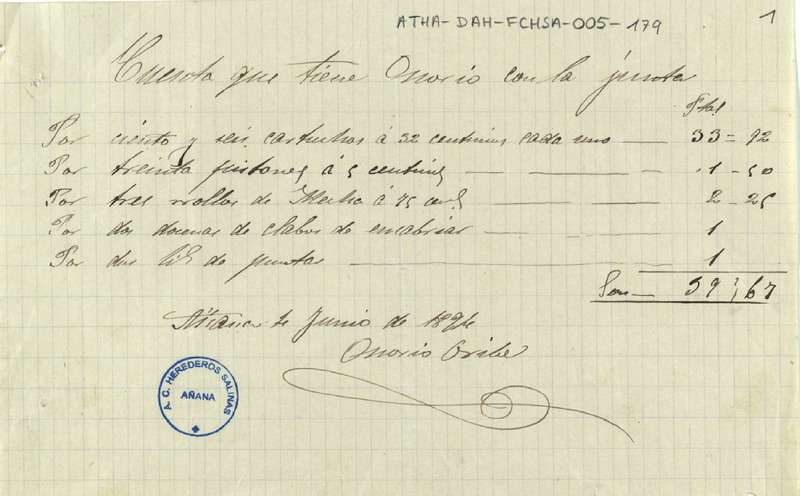 ATHA-DAH-FCHSA-005-179
1
Cuenta que tiene Onorio con la junta
Ptas
Por ciento y seis cartuchos á 32 centimos cada uno — 33 = 92
Por treinta pistones á 5 centims — — — 1 - 50
Por tres rrollos de Mecha á 75 cens — — — 2 - 25
Por dos docenas de clabos de encabriar — — 1
Por dos lib de puntas — — 1
Son — 39 67
Añana Junio de 1894
Onorio Oribe
A. C. HEREDEROS SALINAS
AÑANA